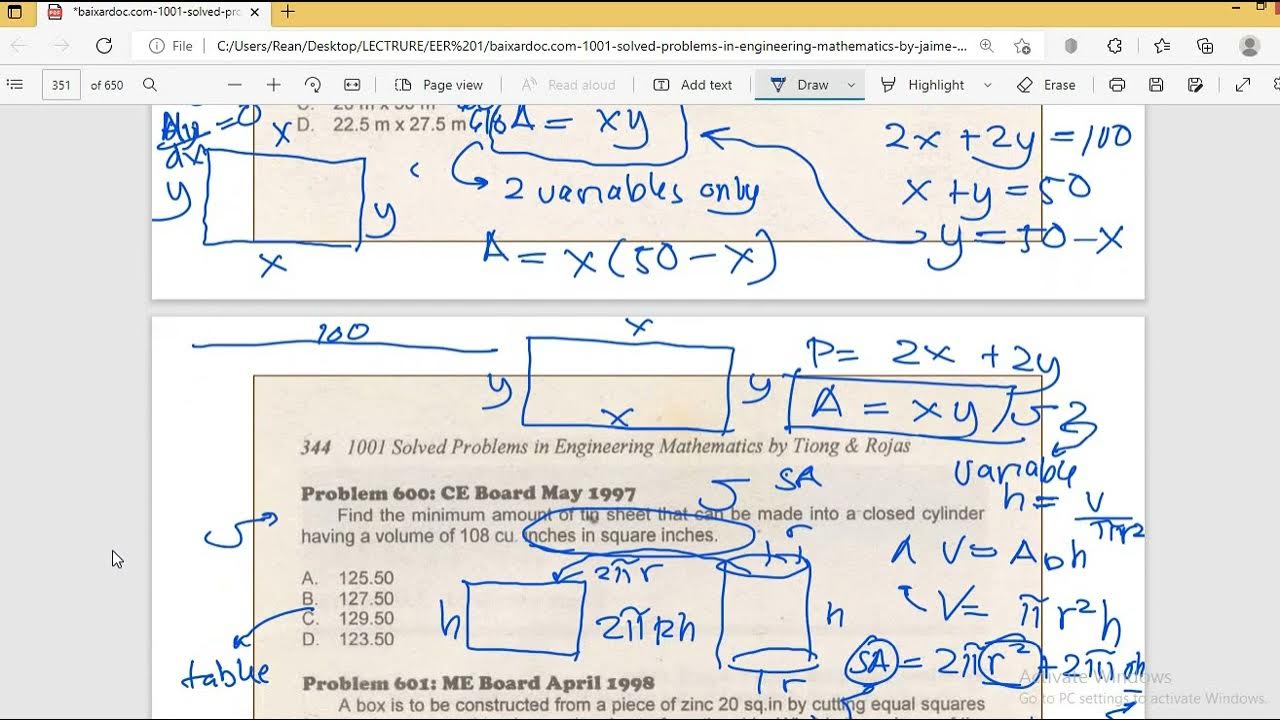 *baixardoc.com-1001-solved-pro
File
C:/Users/Rean/Desktop/LECTRURE/EER%201/baixardoc.com-1001-solved-problems-in-engineering-mathematics-by-jaime-...
351 of 650
Page view
Read aloud
Add text
Draw
Highlight
Erase
D. 22.5 m x 27.5 m
dx
= 0
x
y
y
x
A = xy
2 variables only
A = x(50 - x)
2x + 2y = 100
x + y = 50
y = 50 - x
100
x
y
y
x
P = 2x + 2y
A = xy
3
variable
344 1001 Solved Problems in Engineering Mathematics by Tiong & Rojas
Problem 600: CE Board May 1997
Find the minimum amount of tin sheet that can be made into a closed cylinder
having a volume of 108 cu. inches in square inches.
A. 125.50
B. 127.50
C. 129.50
D. 123.50
table
SA
h
2πr
2πrh
r
h
r
h = V/πr²
V = Abh
V = πr²h
SA = 2πr² + 2πrh
Problem 601: ME Board April 1998
A box is to be constructed from a piece of zinc 20 sq.in by cutting equal squares
Activate Windows
Go to PC settings to activate Windows.